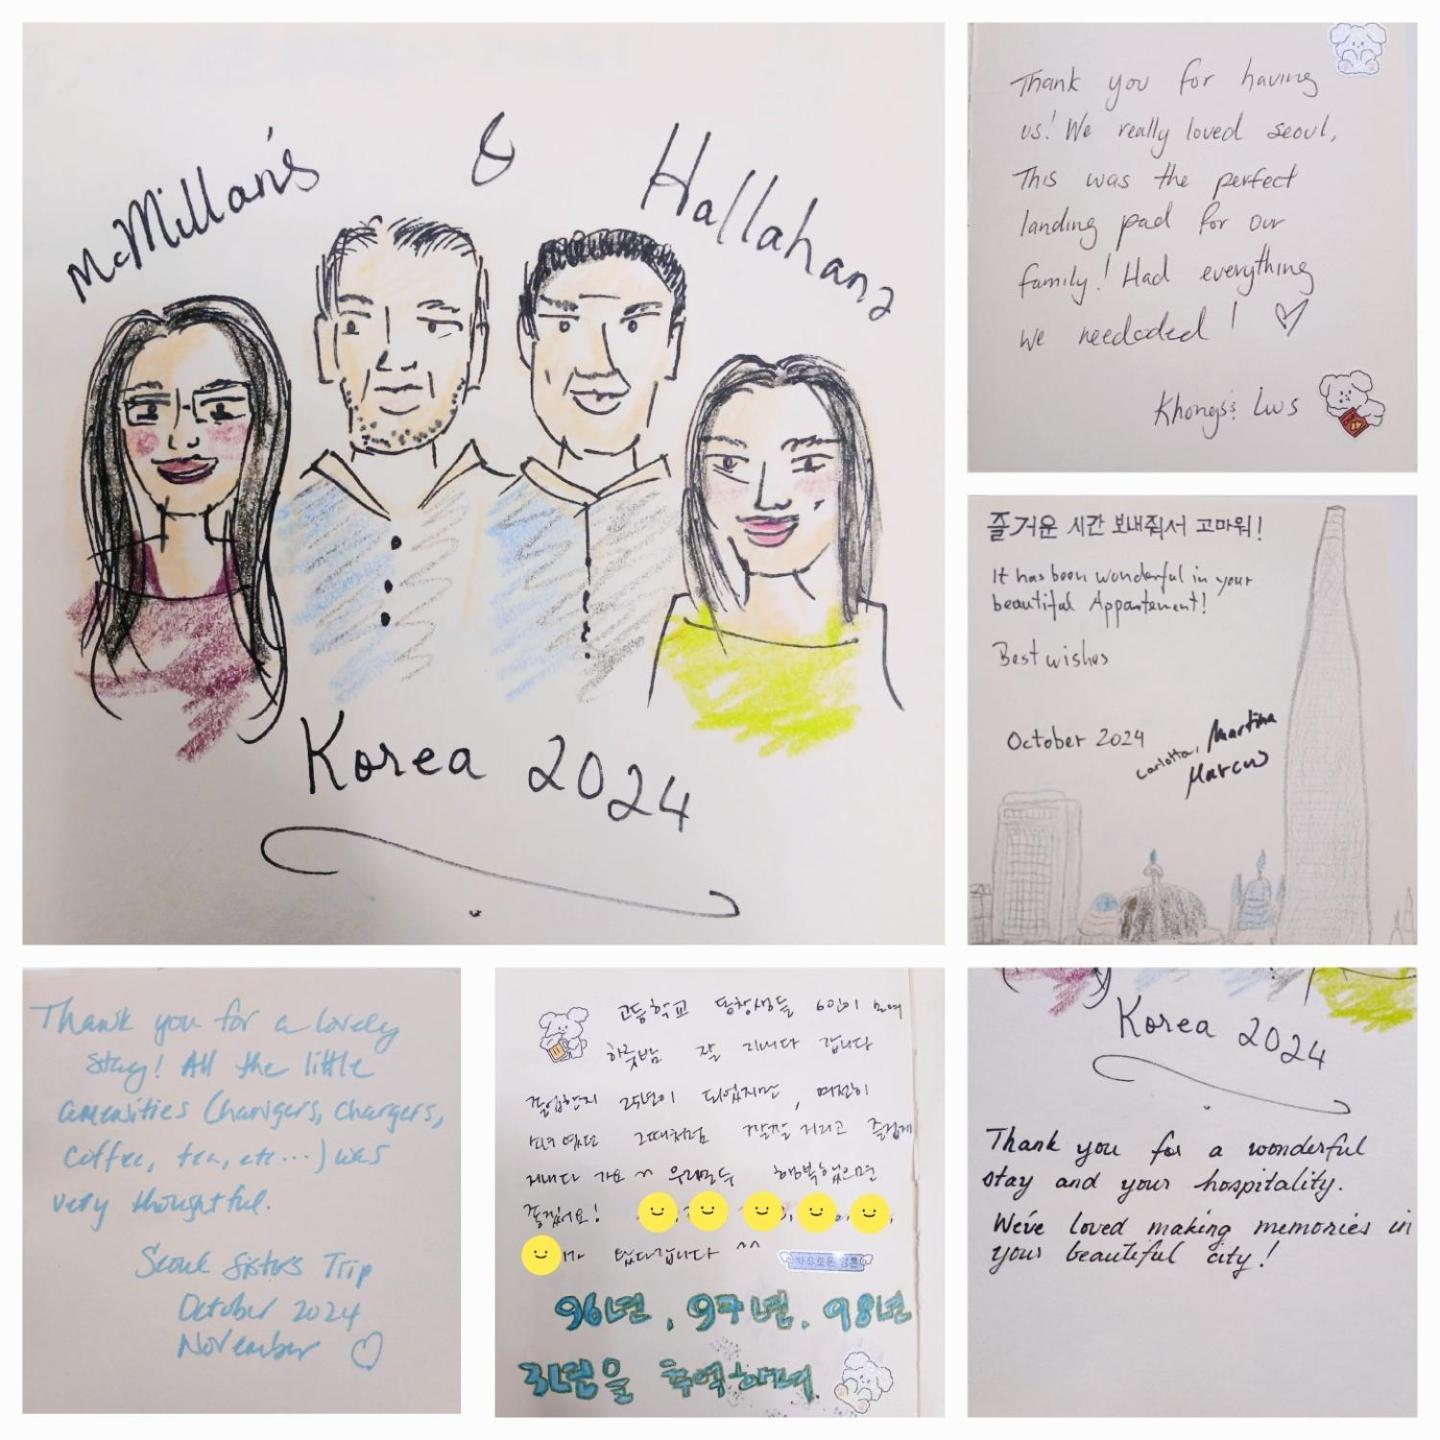 McMillan's & Hallahans
Korea 2024
Thank you for having
us! We really loved seoul,
This was the perfect
landing pad for our
family! Had everything
we neededed!
Khongs & Lws
즐거운 시간 보내줘서 고마워!
It has been wonderful in your
beautiful Appartement!
Best wishes
October 2024
Carlotta, Martina
Marcus
Thank you for a lovely
stay! All the little
amenities (hangers, chargers,
coffee, tea, etc...) was
very thoughtful.
Seoul Sisters Trip
October 2024
November
고등학교 동창생들 6인이 모여
하룻밤 잘 지내다 갑니다
졸업한지 25년이 되었지만, 여전히
소녀였던 그때처럼 깔깔거리고 즐겁게
지내다 가요 ~ 우리모두 행복했으면
좋겠어요!
가 왔다갑니다 ^^
96년, 97년, 98년
3년을 추억하며
Korea 2024
Thank you for a wonderful
stay and your hospitality.
We've loved making memories in
your beautiful city!